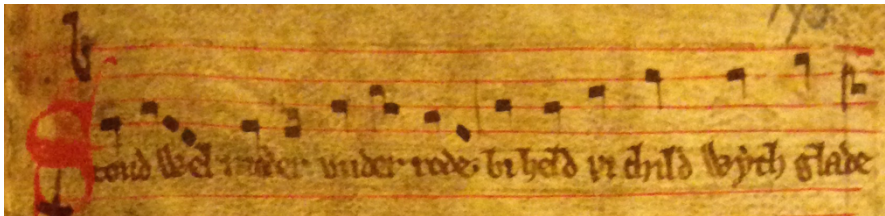 Stond wel moder vnder rode. bi held þi child wyth glade